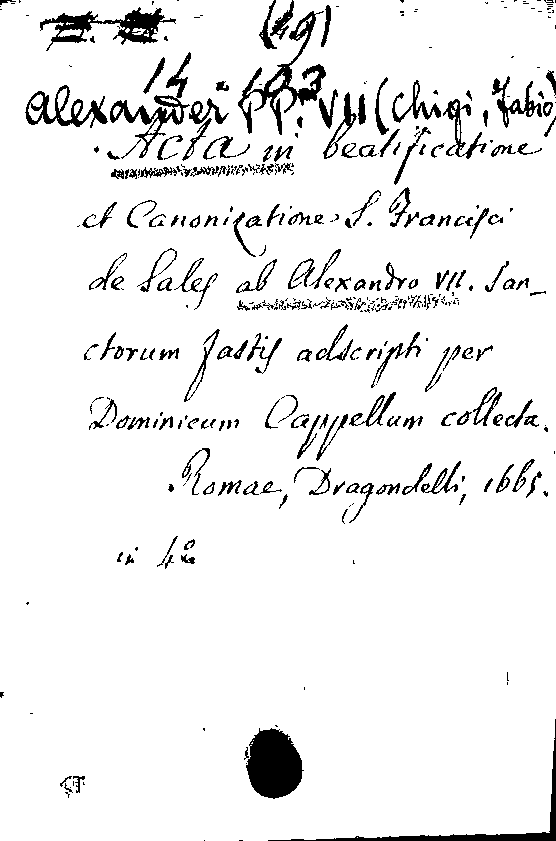 Alexander PP. VII (Chigi, Fabio)
Acta in beatificatione
et Canonizatione S. Francisci
de Sales ab Alexandro VII. San-
ctorum fastis adscripti per
Dominicum Cappellum collecta.
Romae, Dragondelli, 1665.
in 4º